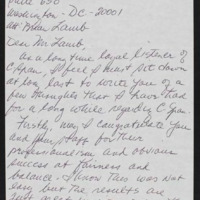 Suite 650
Washington - DC - 20001
Att: Brian Lamb
Dear Mr. Lamb,
As a long time loyal listener of
C-Span, I feel I must sit down
at long last to write you of a
few thoughts that I have had
for a long while regarding C-Span.
Firstly, may I congratulate you
and your staff for their
professionalism and obvious
success at fairness and
balance. I know this was not
easy but the results are